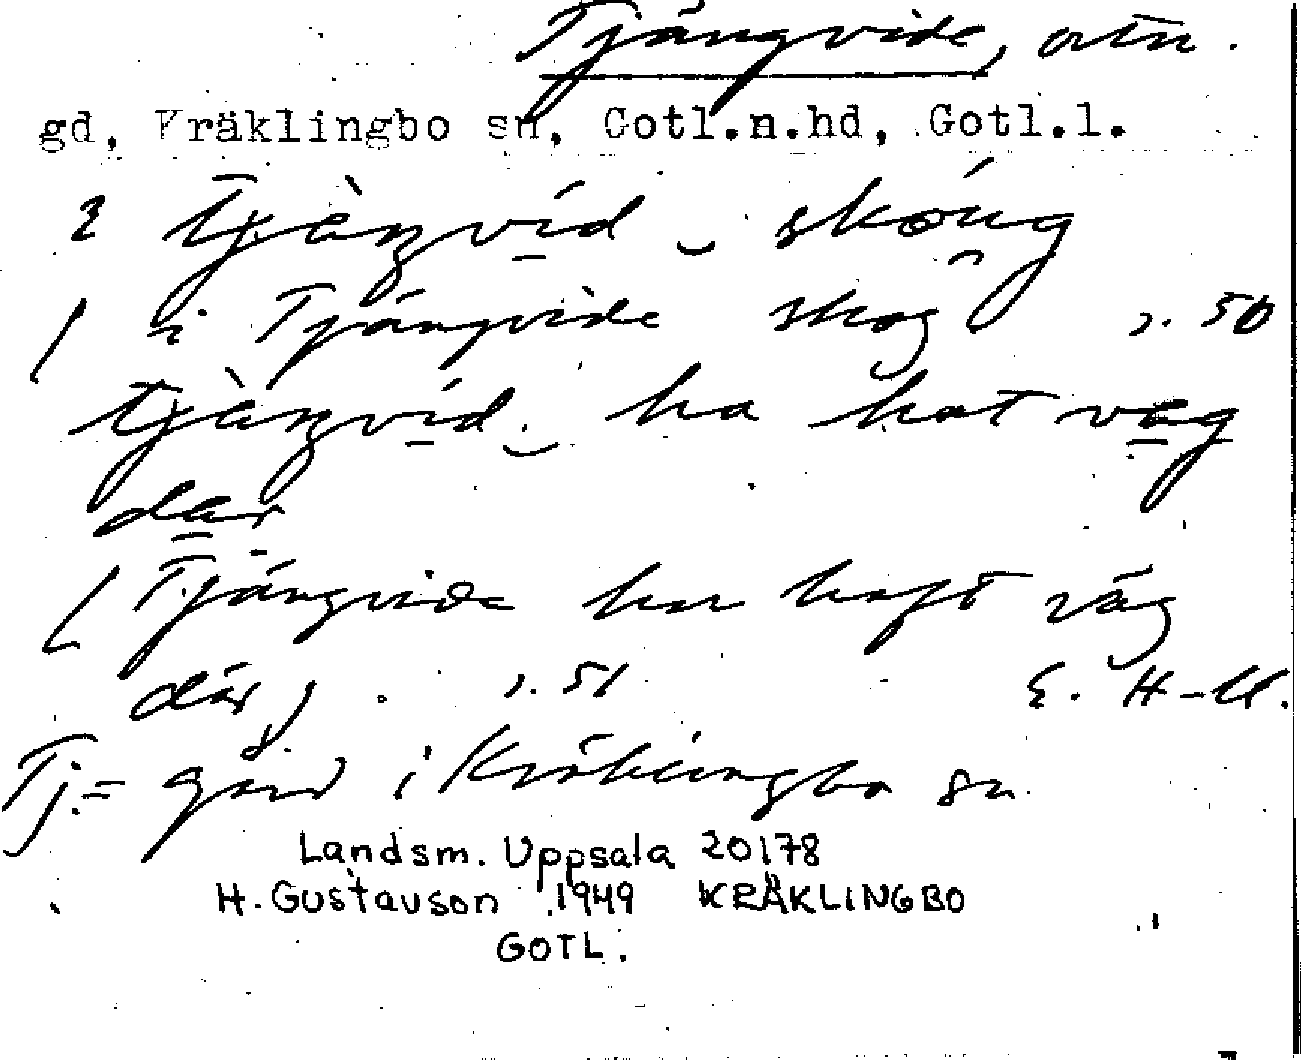 Tjängvide, ortn.
gd, Kräklingbo sn, Gotl.n.hd, Gotl.l.
tjàŋvíd skóug
( i Tjängvide skog s. 50
tjàŋvíd ha hat väg
där
( Tjängvide har haft väg
där) . s. 51 E. H-ll.
Tj.= gård i Kräklingbo sn
Landsm. Uppsala 20178
H. Gustavson 1949 KRÄKLINGBO
GOTL.